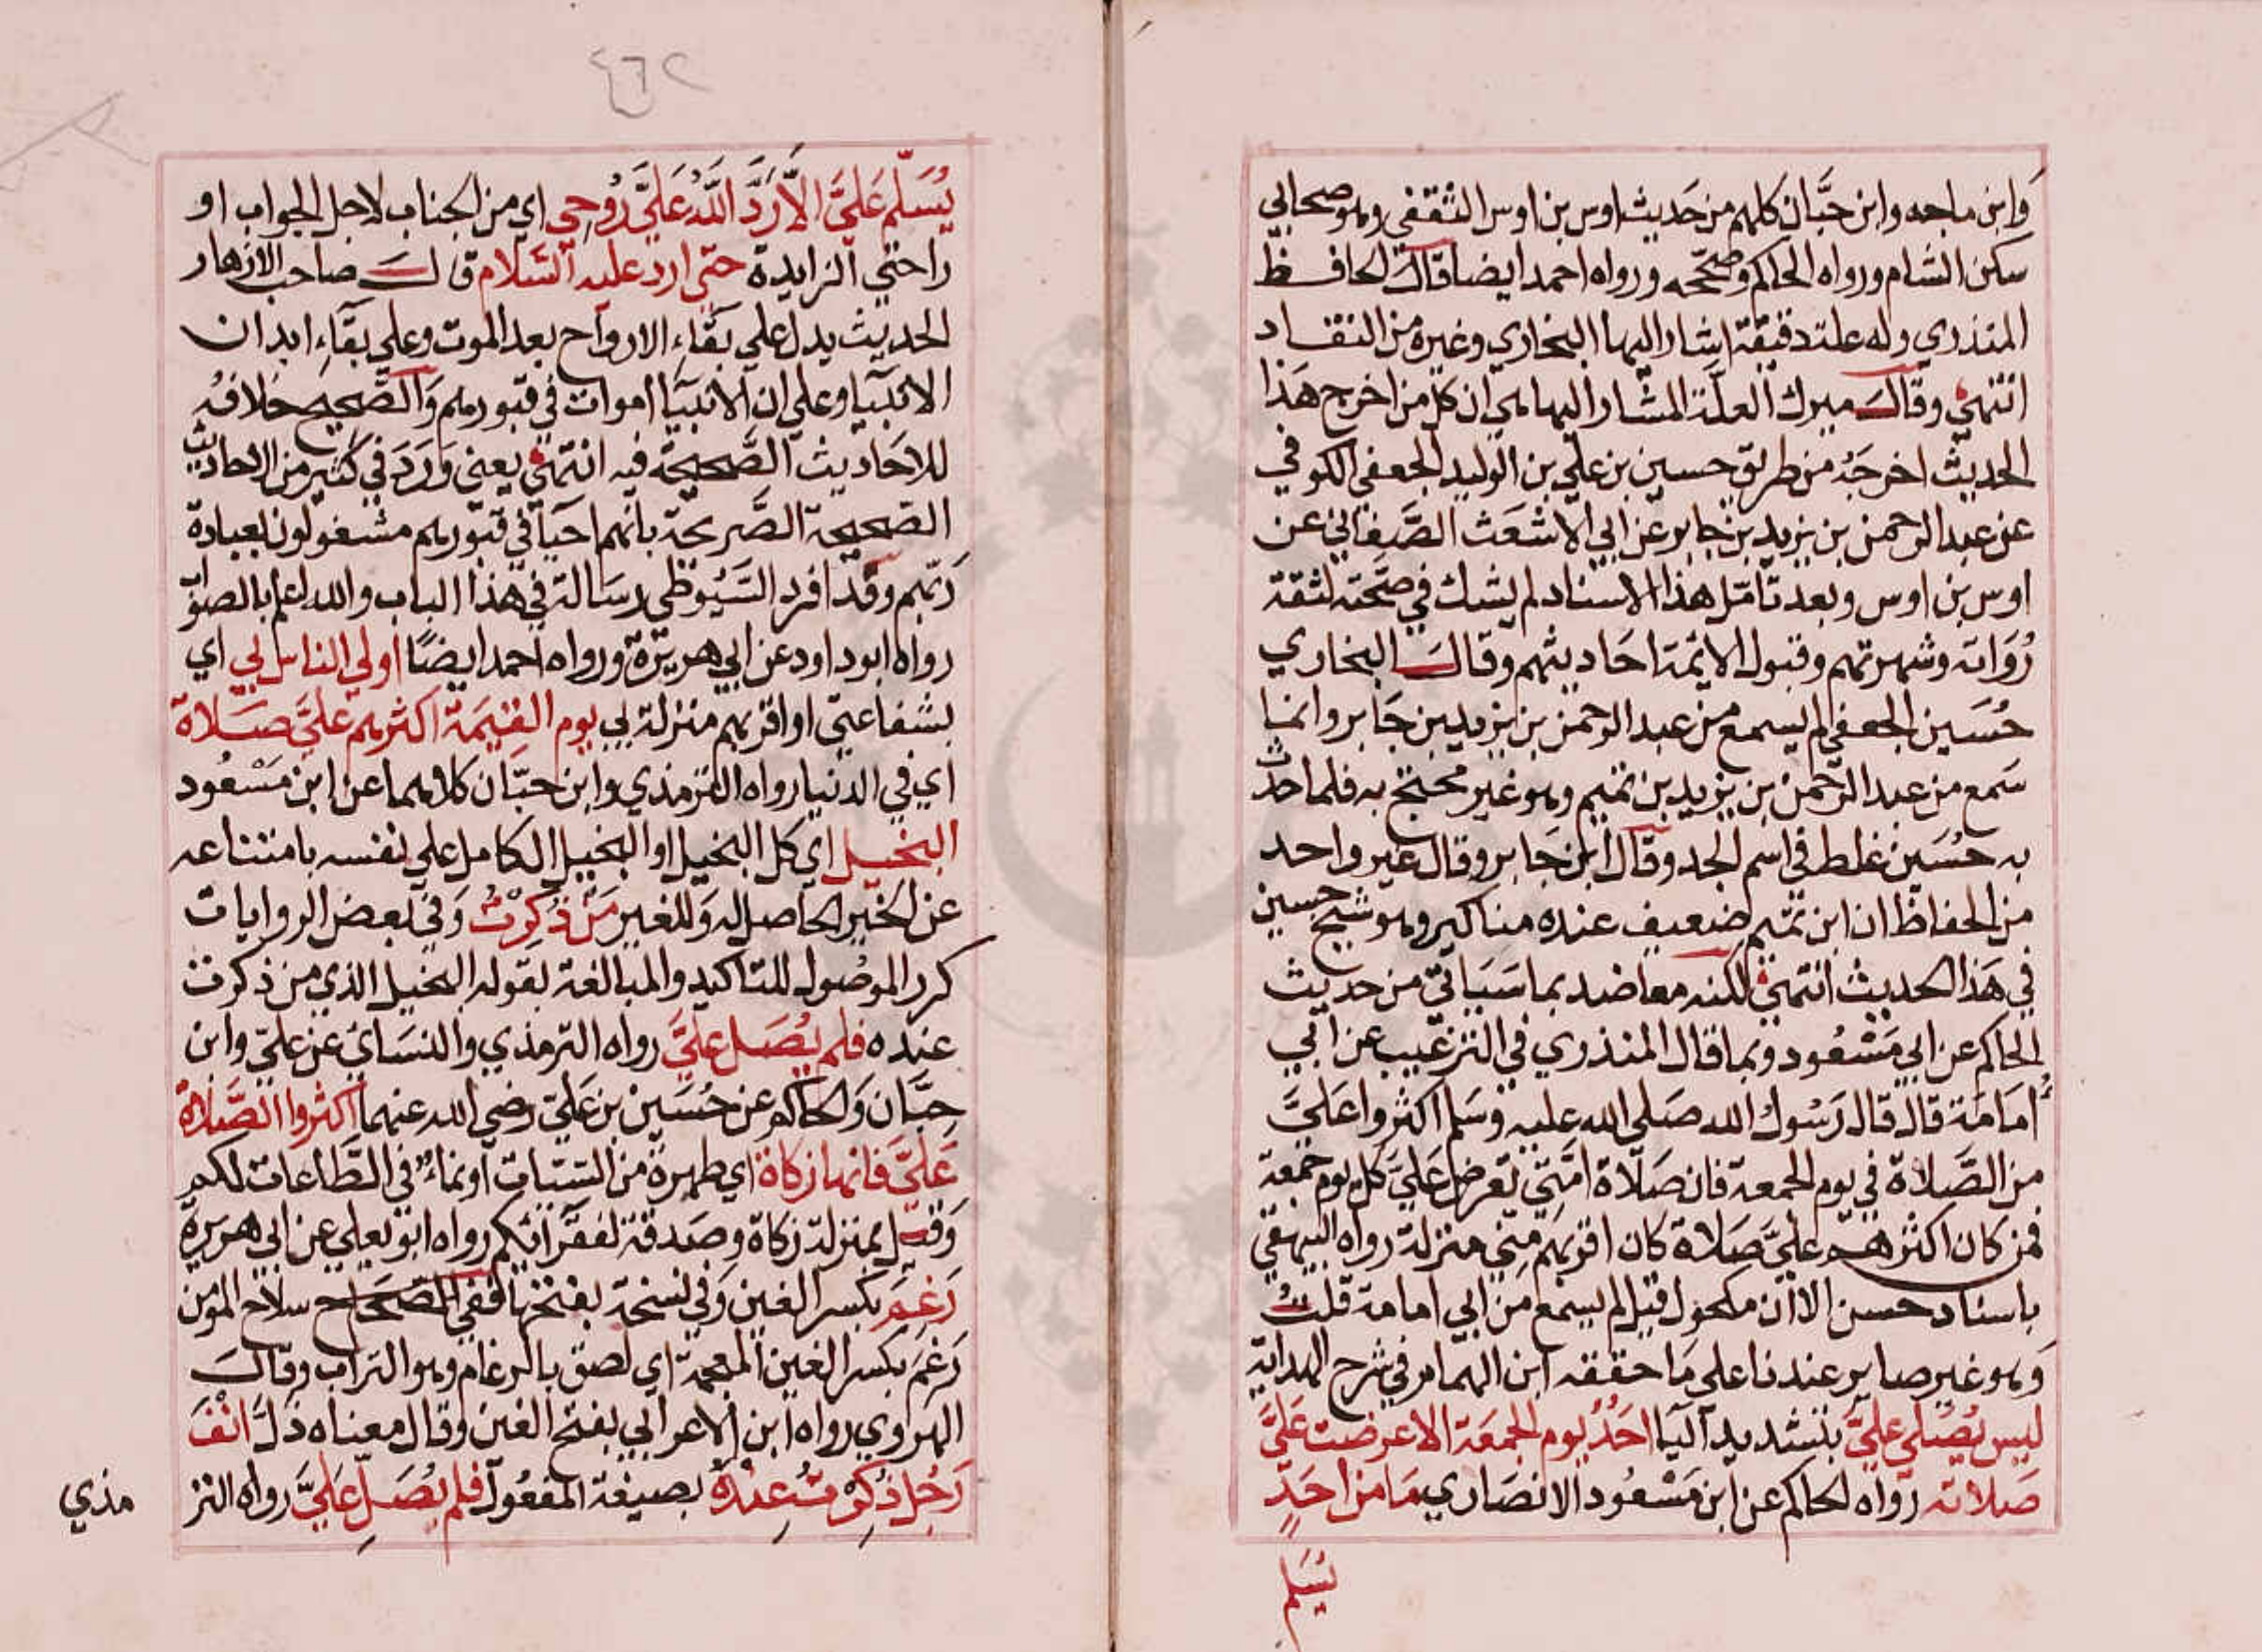 وَابن ماجه وابن حبَّان كلهم من حَديث اوس بن اوس الثقفي وهو صحابي
سكن الشام ورواه الحاكم وصحّحه ورواه احمد ايضا قال الحافظ
المنذري وله علة دقيقة اشار اليها البخاري وغيره من النقاد
انتهي وقال ميرك العلّة المشار اليها هي ان كل من اخرج هَذا
الحديث اخرجَهُ من طريق حسين بن علي بن الوليد الجعفي الكوفي
عن عبد الرحمن بن يزيد بن جابر عن ابي الاشعَث الصَّنعاني عن
اوس بن اوس وبعد تأمّل هذا الاسناد لم يشك في صحّته لثقة
رُوَاته وشهرتهم وقبول الائمة احَاديثهم وقال البخاري
حُسَين الجعفي لم يسمع من عبد الرحمن بن يزيد بن جَابر وانما
سَمع من عبد الرّحمن بن يزيد بن تميم وهو غير محتج به فلما حدّث
به حُسَين غلط في اسم الجد وقال ابن جَابر وقال غير واحد
من الحفاظ ان ابن تميم ضعيف عنده مناكير وهو شيخ حسين
في هَذا الحديث انتهي لكنه معاضد بما سَيَاتي من حديث
الحاكم عن ابي مَسْعُود وبما قال المنذري في الترغيب عن ابي
اُمامَة قال قال رَسُول الله صَلي الله عليه وسَلم اكثروا عَليَّ
من الصَّلاة في يوم الجمعة فان صَلاة امّتي تعرض عَليَّ كل يوم جمعة
فمن كان اكثرهم عليَّ صَلاة كان اقربَهم مِني منزلة رواه البيهقي
باسناد حسن الا ان مكحول قيل لم يسمع من ابي امامة قلتُ
وَهو غير صاير عندنا على مَا حققه ابن الهمام في شرح الهداية
ليس يُصَلي عليَّ بتشديد اليا احَدُ يوم الجمعَة الا عرضت عَليَّ
صَلاته رواه الحاكم عن ابن مَسْعُود الانصَاري مَا مَن احَدٍ
يُسَلم
٤٦٢
يُسَلّم عَليَّ الاَّ رَدَّ اللَّهُ عَليَّ رُوحِي اي من الجناب لاجل الجواب او
راحتي الزايدة حتي ارد عليه السّلام قال صاحب الازهار
الحديث يدل علي بقَاء الارواح بعد الموت وعلي بقَاءِ ابدان
الانبيا وعلي ان الانبيَا اموات في قبورهم وَالصَّحيح خلافُه
للاحَاديث الصَّحيحة فيه انتهي يعني وَرَدَ في كثير من الاحاديث
الصّحيحة الصَّريحة بانهم احيَا في قبورهم مشغولون بعبادة
رَبّهم وقد افرد السّيُوطي رسَالة في هذا الباب والله اعلم بالصوَ
رواه ابوداود عن ابي هريرة ورواه احمد ايضًا اولي الناس بي اي
بشفاعتي او اقربهم منزلة بي يوم القيمَة اكثرهم عليَّ صَلاة
اي في الدنيا رواه الترمذي وابن حبّان كلاهما عن ابن مَسْعُود
البَخيل اي كل البخيل او البخيل الكامل علي نفسه بامتناعه
عن الخير الحَاصل له وَللغير مَنْ ذُكِرْتُ وَفي بعض الروايات
كرر الموصُول للتاكيد والمبالغة بقوله البخيل الذي من ذكرت
عنده فلم يُصَل عليَّ رواه الترمذي والنسَائ عن عليّ وابن
حِبَّان وَالحاكم عن حُسَين بن عَليّ رضي الله عنهما اكثروا الصَّلاة
عَليَّ فانها زكاة اي طهرة من السّيات او نماءٌ في الطَّاعات لكم
وَقيل بمنزلة زكاة وصَدقة لفقرَائكم رواه ابو يعلي عن ابي هريرة
رَغِمَ بكسر الغين وَفي نسخة بفتحها ففي الصحَاح سلاح المؤمن
رَغِمَ بكسر الغين المعجمة اي لصق بالرغام وهو التراب وقال
الهروي رواه ابن الاعرابي بفتح الغين وقال معناه ذَلَّ انْفَ
رَجُل ذُكِرْتُ عِنْدَهُ بصيغة المفعُول فلم يُصَلِّ عَليَّ رواه التر
مذي